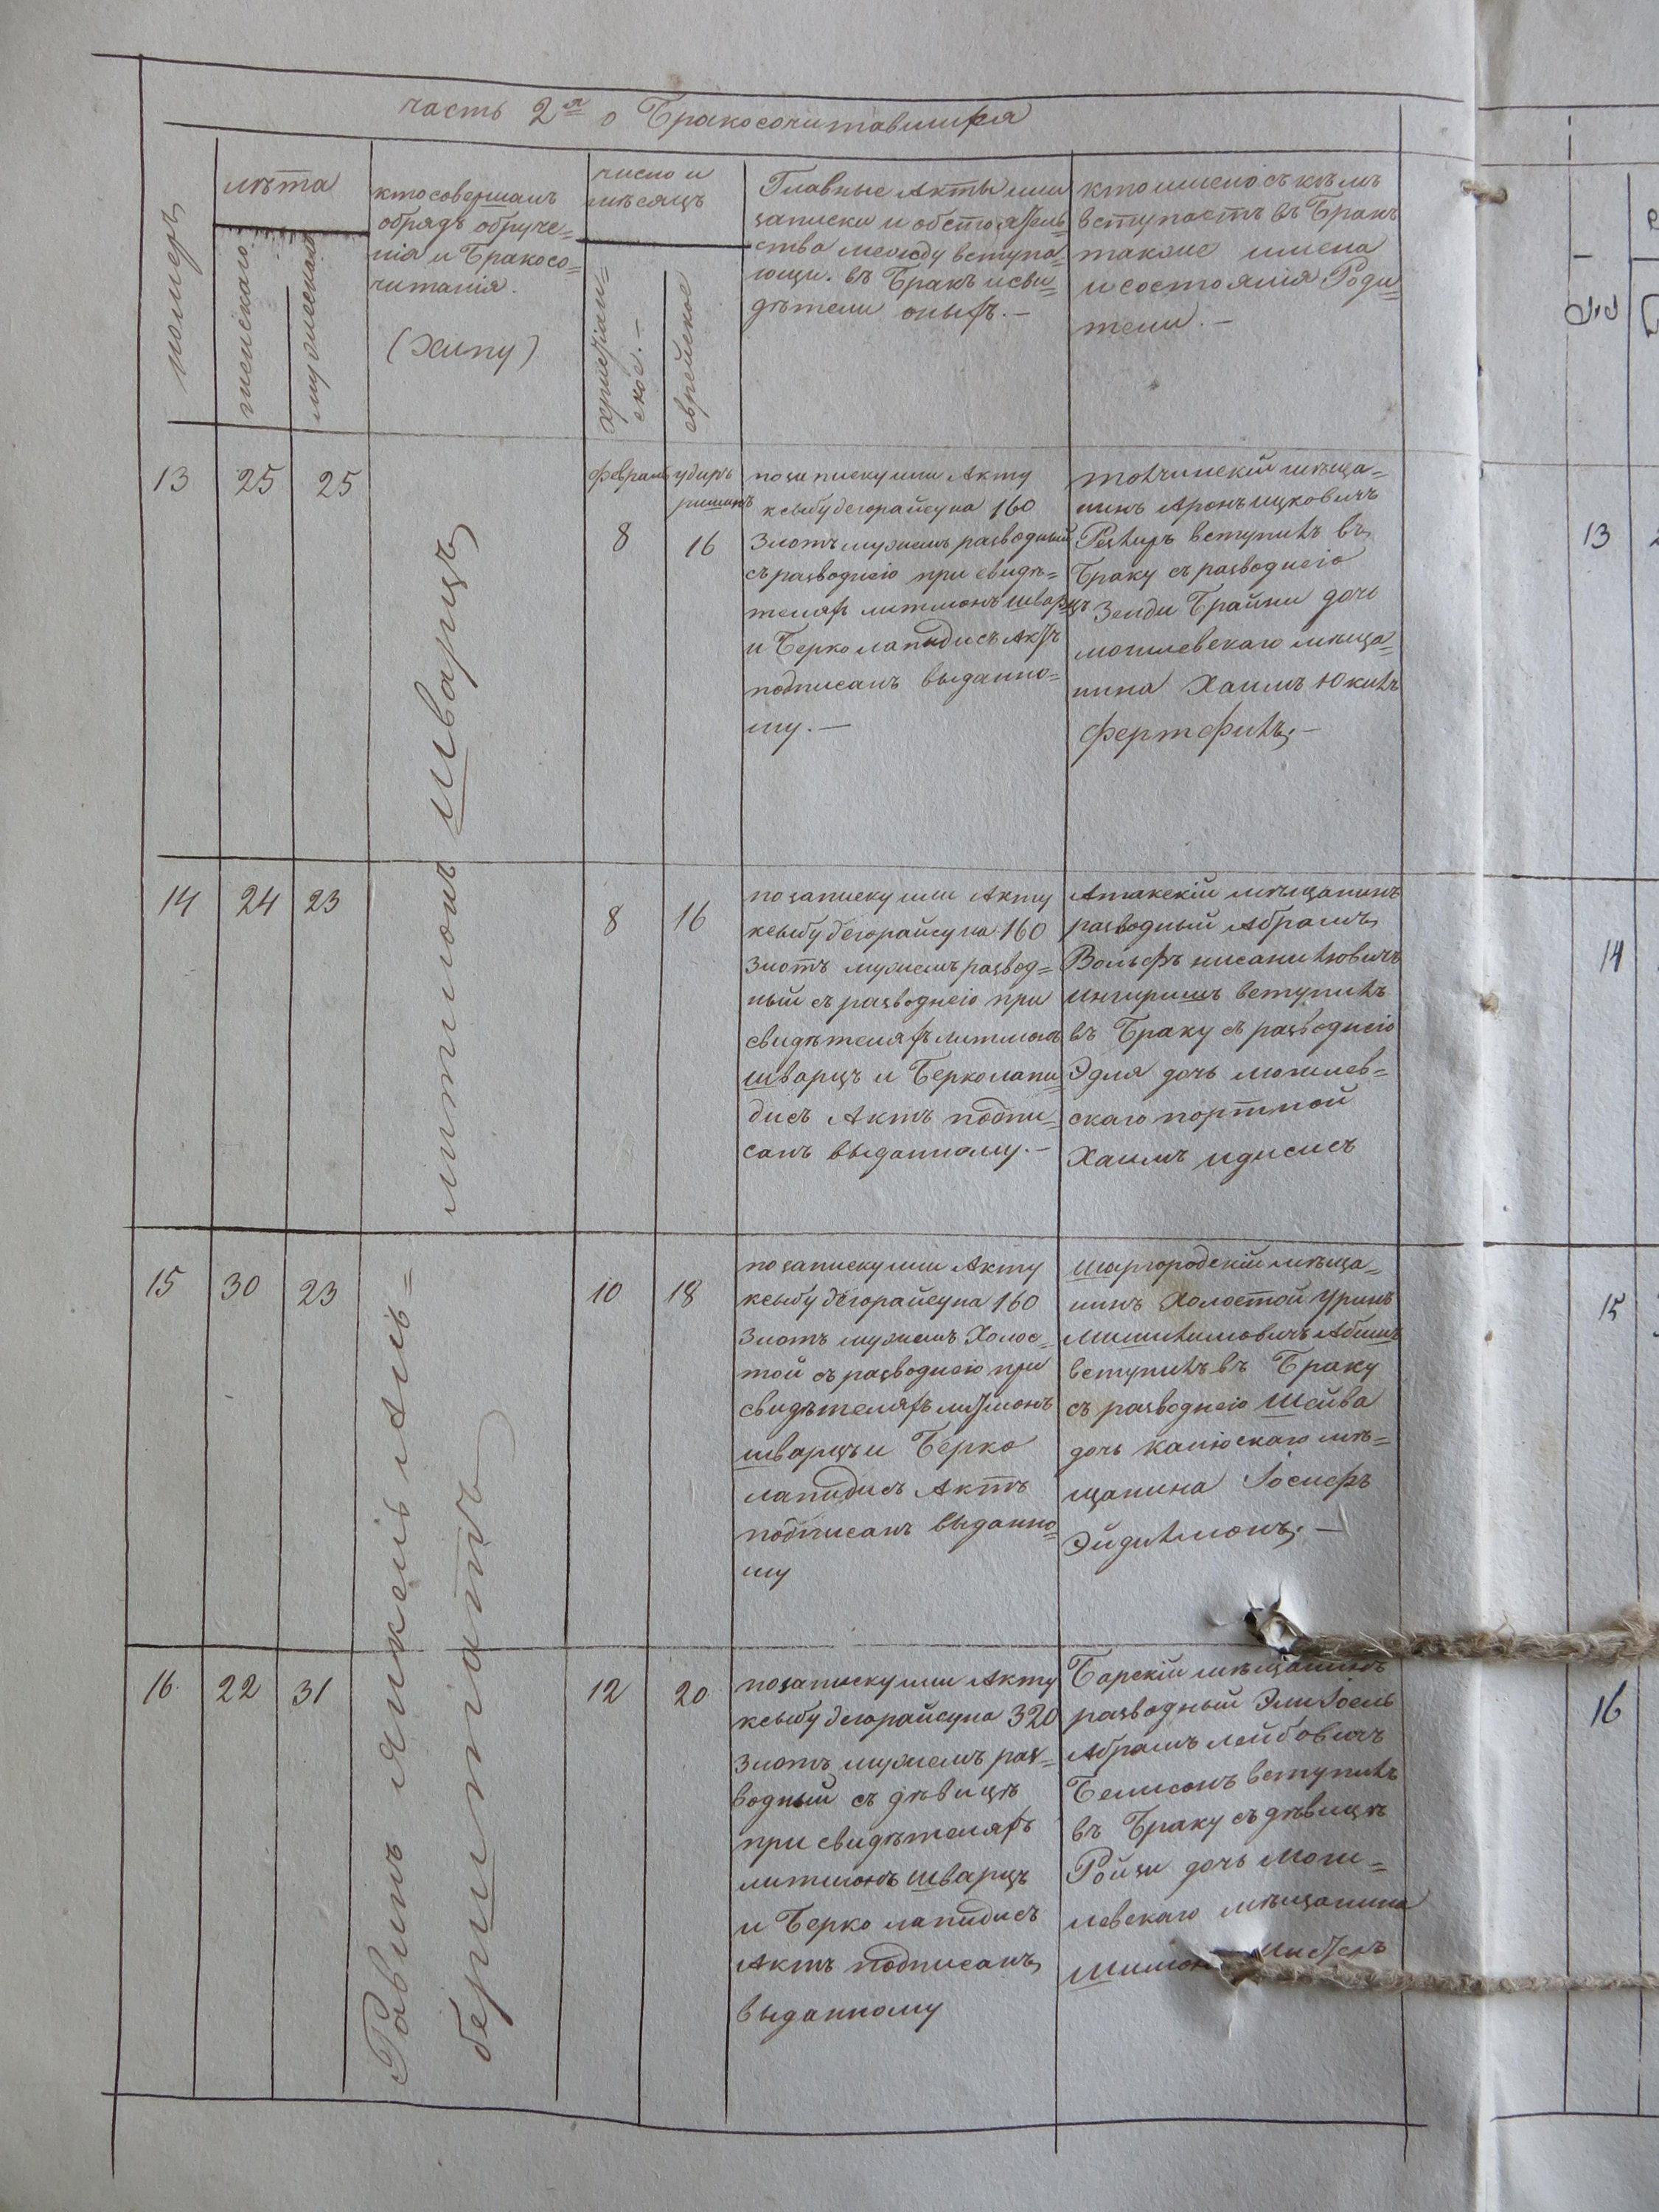 часть 2я о Бракосочитавшихся
номеръ
лѣта
женскаго
мужескаго
кто совершалъ
обрядъ обруче=
нія и Бракосо=
читанія.
(Хипу)
число и
мѣсяцъ
христіан=
ское.—
еврейское
Главные Акты или
записки и обстоятель
ства между вступа=
ющи. въ Бракъ и сви=
дѣтели оныхъ.—
кто именно съ кѣмъ
вступаетъ въ Бракъ
также имена
и состоянія Роди=
тели.—
Рабинъ Янкель
литманъ шварцъ
13
25
25
февраль
8
16
по записку или Акту
ксыбу дегорайсу на 160
Злотъ мужемъ разводный
съ разводнею при свидѣ=
теляхъ литманъ шварцъ
и Берко лапидисъ Актъ
подписанъ выданно=
му.—
мѣща=
нинъ Аронъ Ицковичъ
вступилъ въ
Браку съ разводнею
Зелди Брайни дочь
могилевскаго мѣща=
нина Хаимъ
14
24
23
8
16
по записку или Акту
ксыбу дегорайсу на 160
Злотъ мужемъ развод=
ный съ разводнею при
свидѣтеляхъ литманъ
шварцъ и Берко лапи=
дисъ Актъ подпи=
санъ выданному.—
Атакскій мѣщанинъ
разводный Абрамъ
Вольфъ
вступилъ
въ Браку съ разводнею
Эдля дочь могилев=
скаго портной
Хаимъ идисисъ
15
30
23
10
18
по записку или Акту
ксыбу дегорайсу на 160
Злотъ мужемъ Холос=
той съ разводнею при
свидѣтеляхъ литманъ
шварцъ и Берко
лапидисъ Актъ
подписанъ выданно=
му
шаргородскій мѣща=
нинъ Холостой Уринъ
вступилъ въ Браку
съ разводнею Шейва
дочь калюскаго мѣ=
щанина Іосифъ
Эйдилманъ.—
16
22
31
12
20
по записку или Акту
ксыбу дегорайсу на 320
Злотъ мужемъ раз=
водный съ дѣвицѣ
при свидѣтеляхъ
литманъ шварцъ
и Берко лапидисъ
Актъ подписанъ
выданному
Барскій мѣщанинъ
разводный Эли Іосель
Абрамъ лейбовичъ
вступилъ
въ Браку съ дѣвицѣ
Ройзи дочь Моги=
левскаго мѣщанина
13
14
15
16